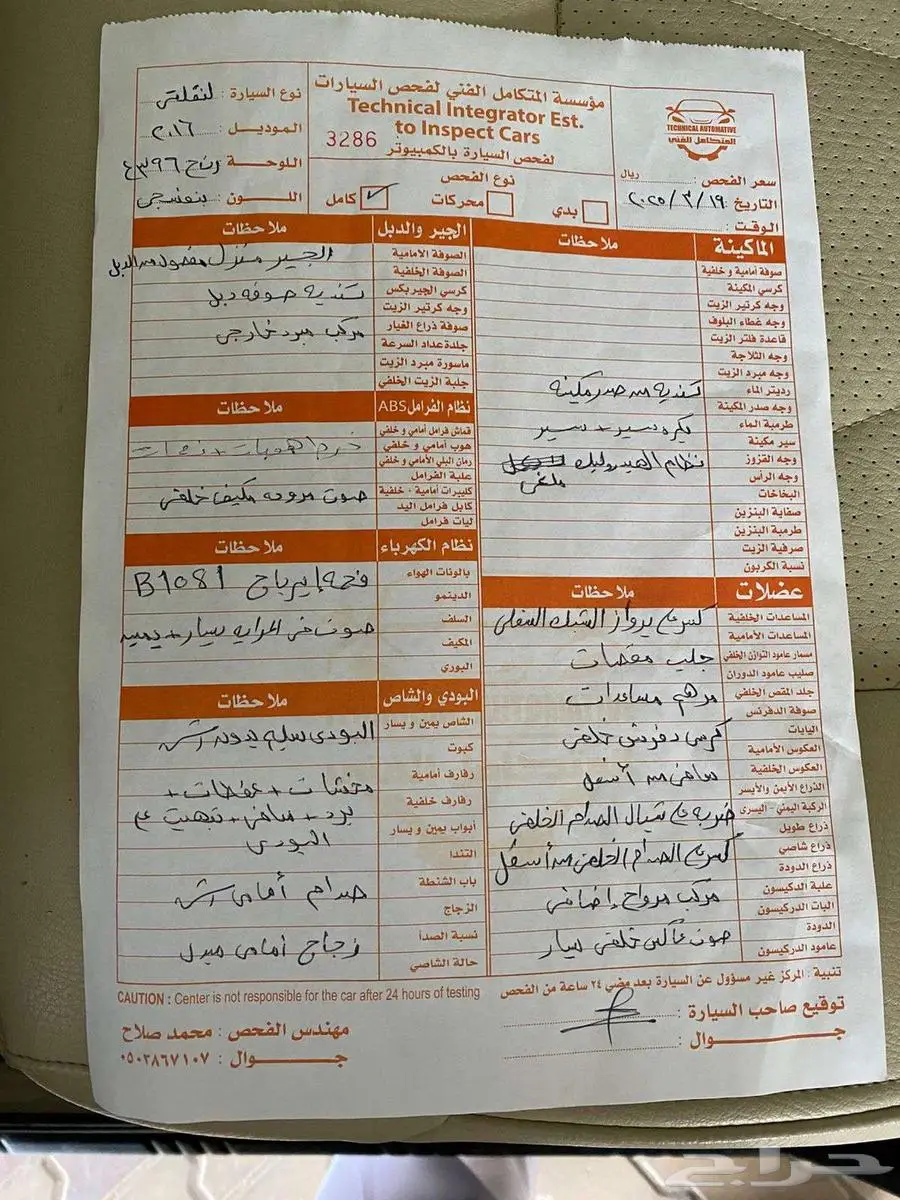 مؤسسة المتكامل الفني لفحص السيارات
Technical Integrator Est.
to Inspect Cars
3286
لفحص السيارة بالكمبيوتر
TECHNICAL AUTOMOTIVE
المتكامل الفني
سعر الفحص : ريال
التاريخ : ٢٠٢٥/٣/١٩
الوقت :
نوع الفحص
بدي
محركات
كامل ✓
نوع السيارة :
الموديل : ٢٠١٦
اللوحة :
اللون : بنفسجي
الماكينة
ملاحظات
صوفة أمامية و خلفية
كرسي المكينة
وجه كرتير الزيت
وجه غطاء البلوف
قاعدة فلتر الزيت
وجه الثلاجة
وجه مبرد الزيت
رديتر الماء
وجه صدر المكينة
تنديه من صدر مكينه
طرمبة الماء
سير مكينة
بكره سير + سير
وجه القزوز
وجه الرأس
نظام الهيدروليك
ملغي
البخاخات
صفاية البنزين
طرمبة البنزين
صرفية الزيت
نسبة الكربون
عضلات
ملاحظات
المساعدات الخلفية
كسر في برواز الشبك السفلي
المساعدات الأمامية
مسمار عامود التوازن الخلفي
جلب مقصات
صليب عامود الدوران
جلد المقص الخلفي
مرهم مساعدات
صوفة الدفرنس
اليايات
كرسي دفرنش خلفي
العكوس الأمامية
العكوس الخلفية
صافي من أسفل
الذراع الأيمن والأيسر
الركبة اليمنى - اليسرى
ضربه في شيال الصدام الخلفي
ذراع طويل
ذراع شاصي
كسر في الصدام الخلفي من أسفل
ذراع الدودة
علبة الدكيسون
مركب مرواح إضافي
البات الدركيسون
الدودة
صوت عاكس خلفي يسار
عامود الدركيسون
الجير والدبل
ملاحظات
الصوفة الأمامية
الجير منزل مفصول من الدبل
الصوفة الخلفية
كرسي الجيربكس
تنديه صوفه دبل
وجه كرتير الزيت
صوفة ذراع الغيار
مركب مبرد خارجي
جلدة عداد السرعة
ماسورة مبرد الزيت
جلبة الزيت الخلفي
نظام الفرامل ABS
ملاحظات
قماش فرامل أمامي و خلفي
هوب أمامي و خلفي
رمان البلي الأمامي و خلفي
علبة الفرامل
كليبرات أمامية - خلفية
صوت مروحه مكيف خلفي
كابل فرامل اليد
ليات فرامل
نظام الكهرباء
ملاحظات
بالونات الهواء
فحص إيرباج B1081
الدينمو
السلف
صوت في المرايه يسار + يمين
المكيف
البوري
البودي والشاص
ملاحظات
الشاص يمين و يسار
البودي سليم بدون رش
كبوت
رفارف أمامية
خدشات + عفطات +
رفارف خلفية
برد + صافي + تبهيت في
أبواب يمين و يسار
البودي
التندا
باب الشنطة
صدام أمامي رش
الزجاج
نسبة الصدأ
زجاج أمامي مبدل
حالة الشاصي
تنبية : المركز غير مسؤول عن السيارة بعد مضي ٢٤ ساعة من الفحص
CAUTION : Center is not responsible for the car after 24 hours of testing
توقيع صاحب السيارة :
جـــوال :
مهندس الفحص : محمد صلاح
جـــوال : ٠٥٠٣٨٦٧١٠٧
حراج